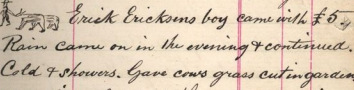 Erick Ericksens boy came with £5
Rain came on in the evening & continued.
Cold & showers. Gave cows grass cut in garden